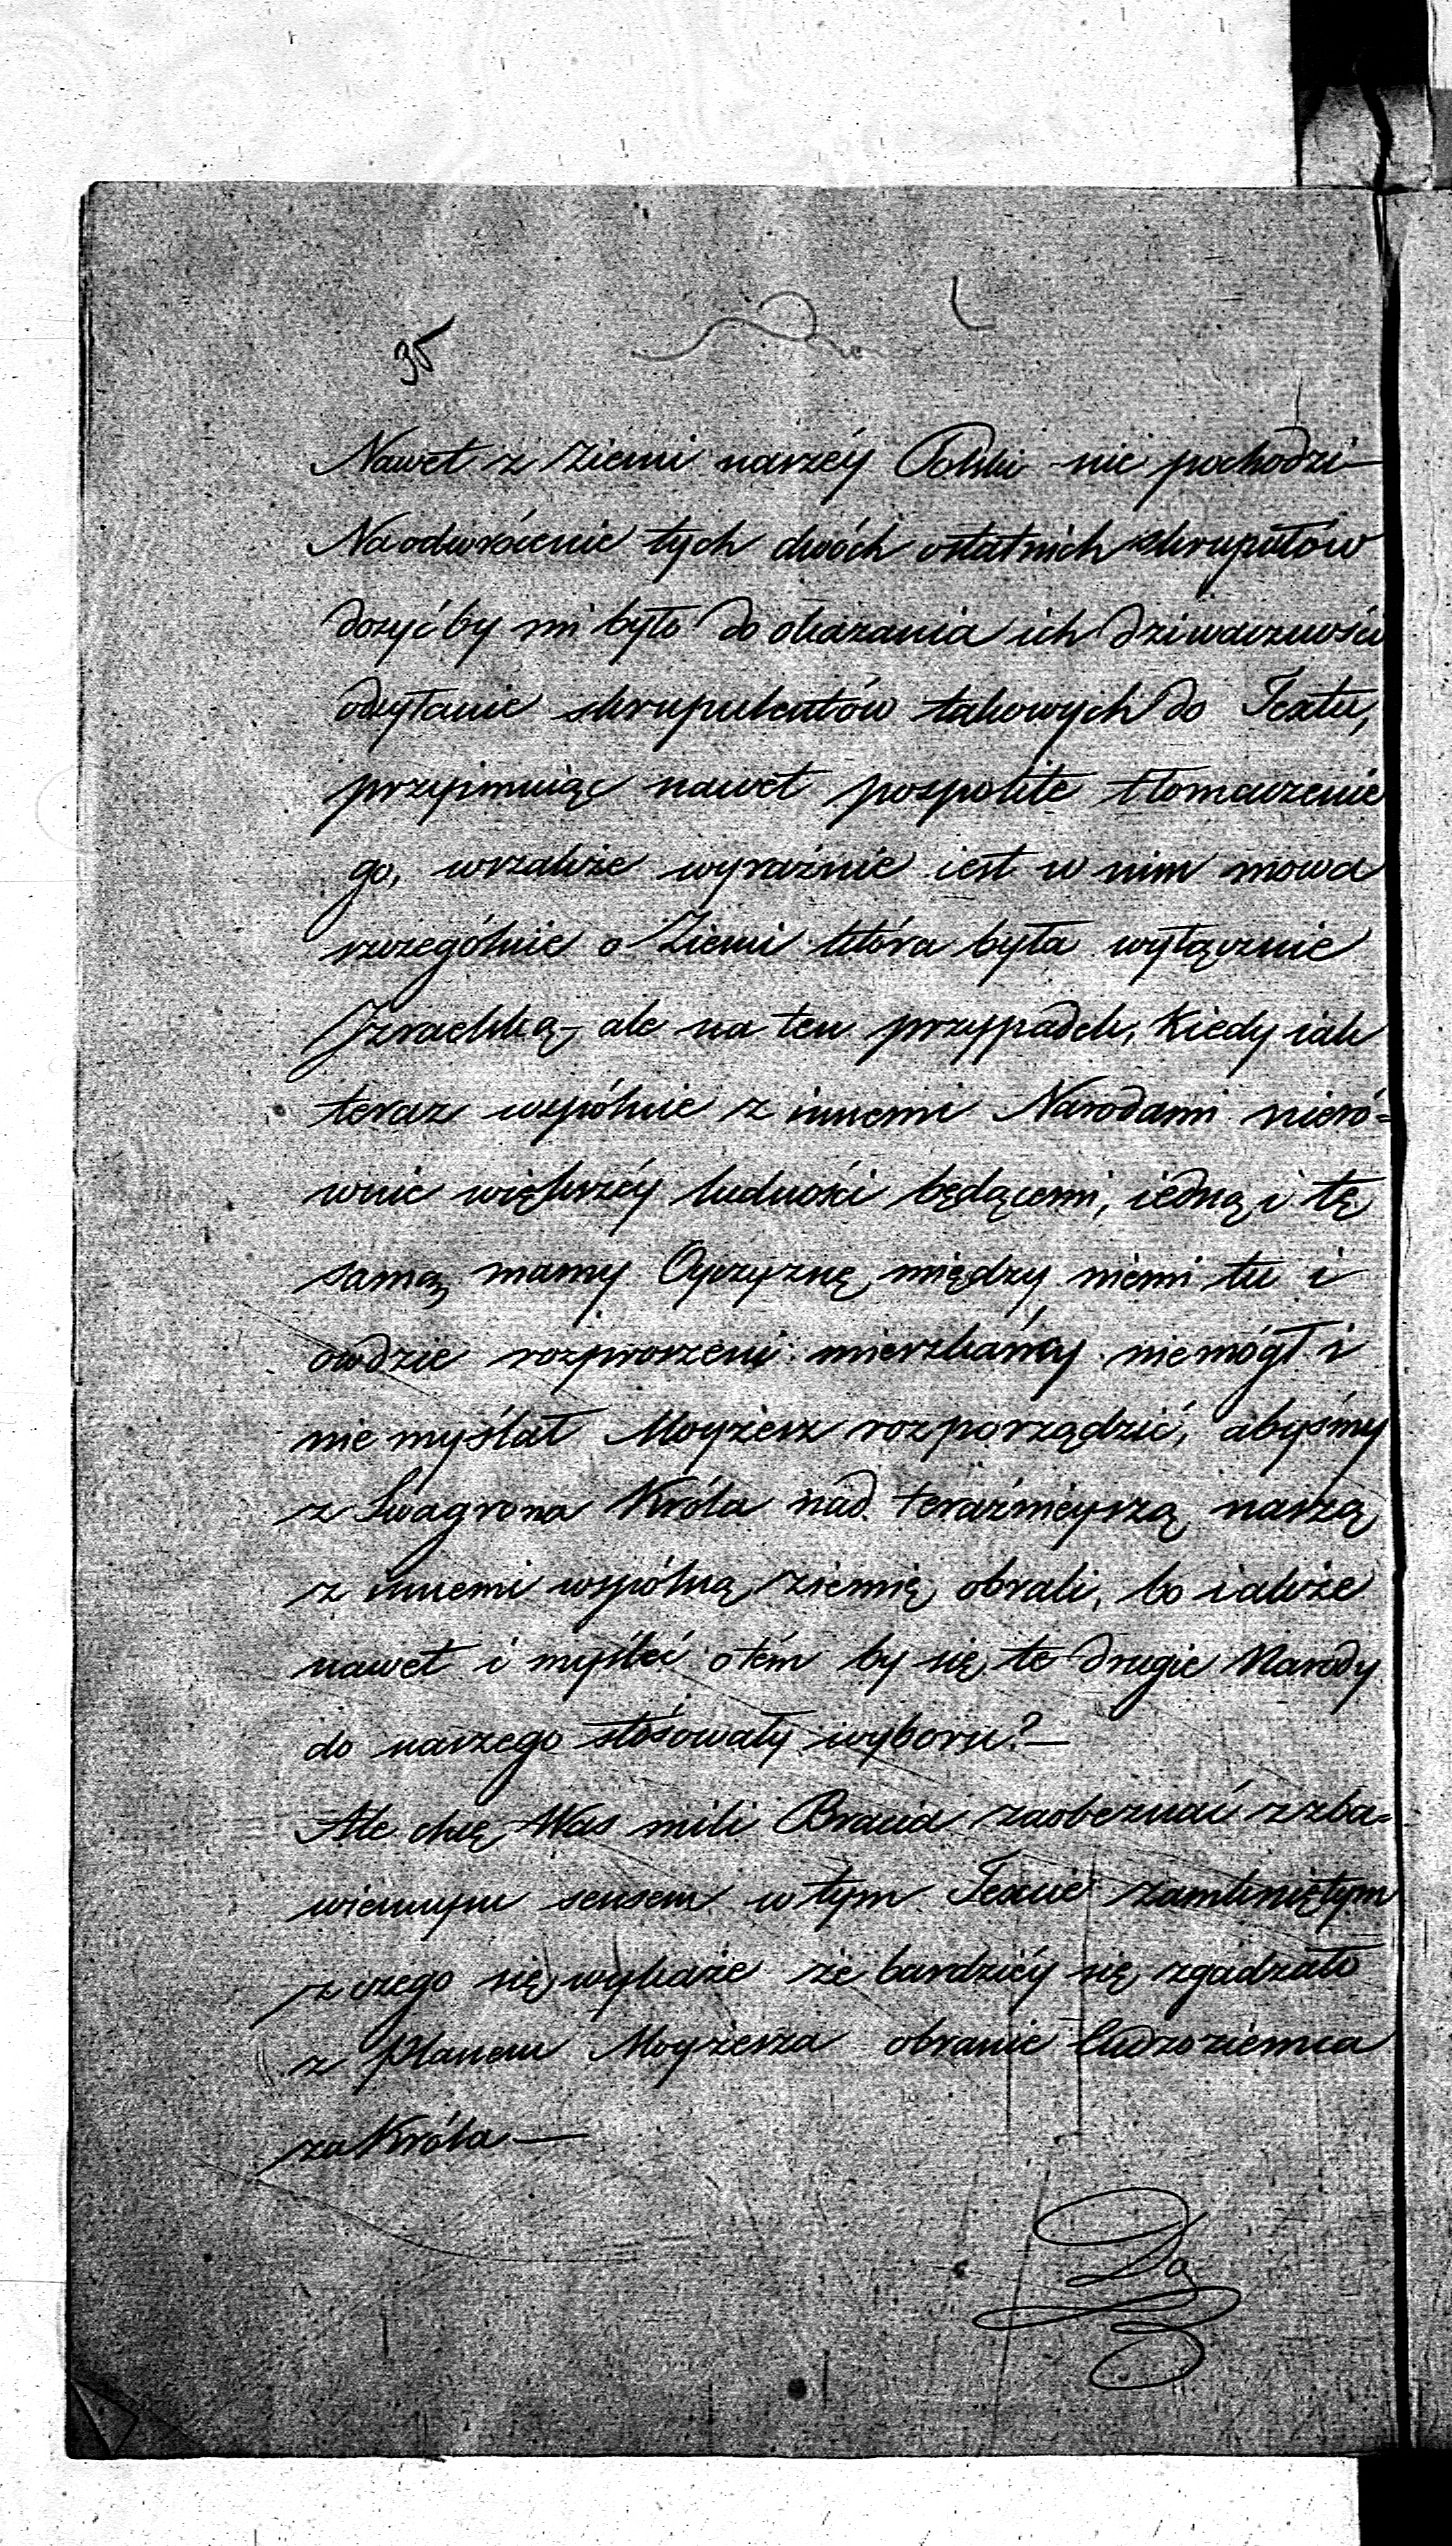 35
Nawet z Ziemi naszéy Polski nie pochodzi —
Na odwrócenie tych dwóch ostatnich skrupułów
dosyć by mi było do okazania ich dziwaczności
odsyłanie skrupulantów takowych do Textu,
przyimuiąc nawet pospolite tłomaczenie
go, wszakże wyraźnie iest w nim mowa
szczególnie o Ziemi która była wyłącznie
Izraelską, ale na ten przypadek, Kiedy iak
teraz wspólnie z innemi Narodami nieró=
wnie większéy ludności będącemi, iedną i tę
samą mamy Oyczyznę, między niemi tu i
owdzie rozproszeni mieszkańcy niemógł i
nie myślał Moyżesz rozporządzić, abyśmy
z Swagrona Króla nad teraźnieyszą naszą
z innemi wspólną ziemię obrali, bo iakże
nawet i myśleć o tém by się te drugie Narody
do naszego stósowały wyboru? —
Ale chcę Was mili Bracia zaobeznać z zba=
wiennym sensem w tym Texcie zamkniętym
z czego się wykaże że bardziéy się zgadzało
z Planem Moyżesza obranie Cudzoziemca
za Króla —
Da